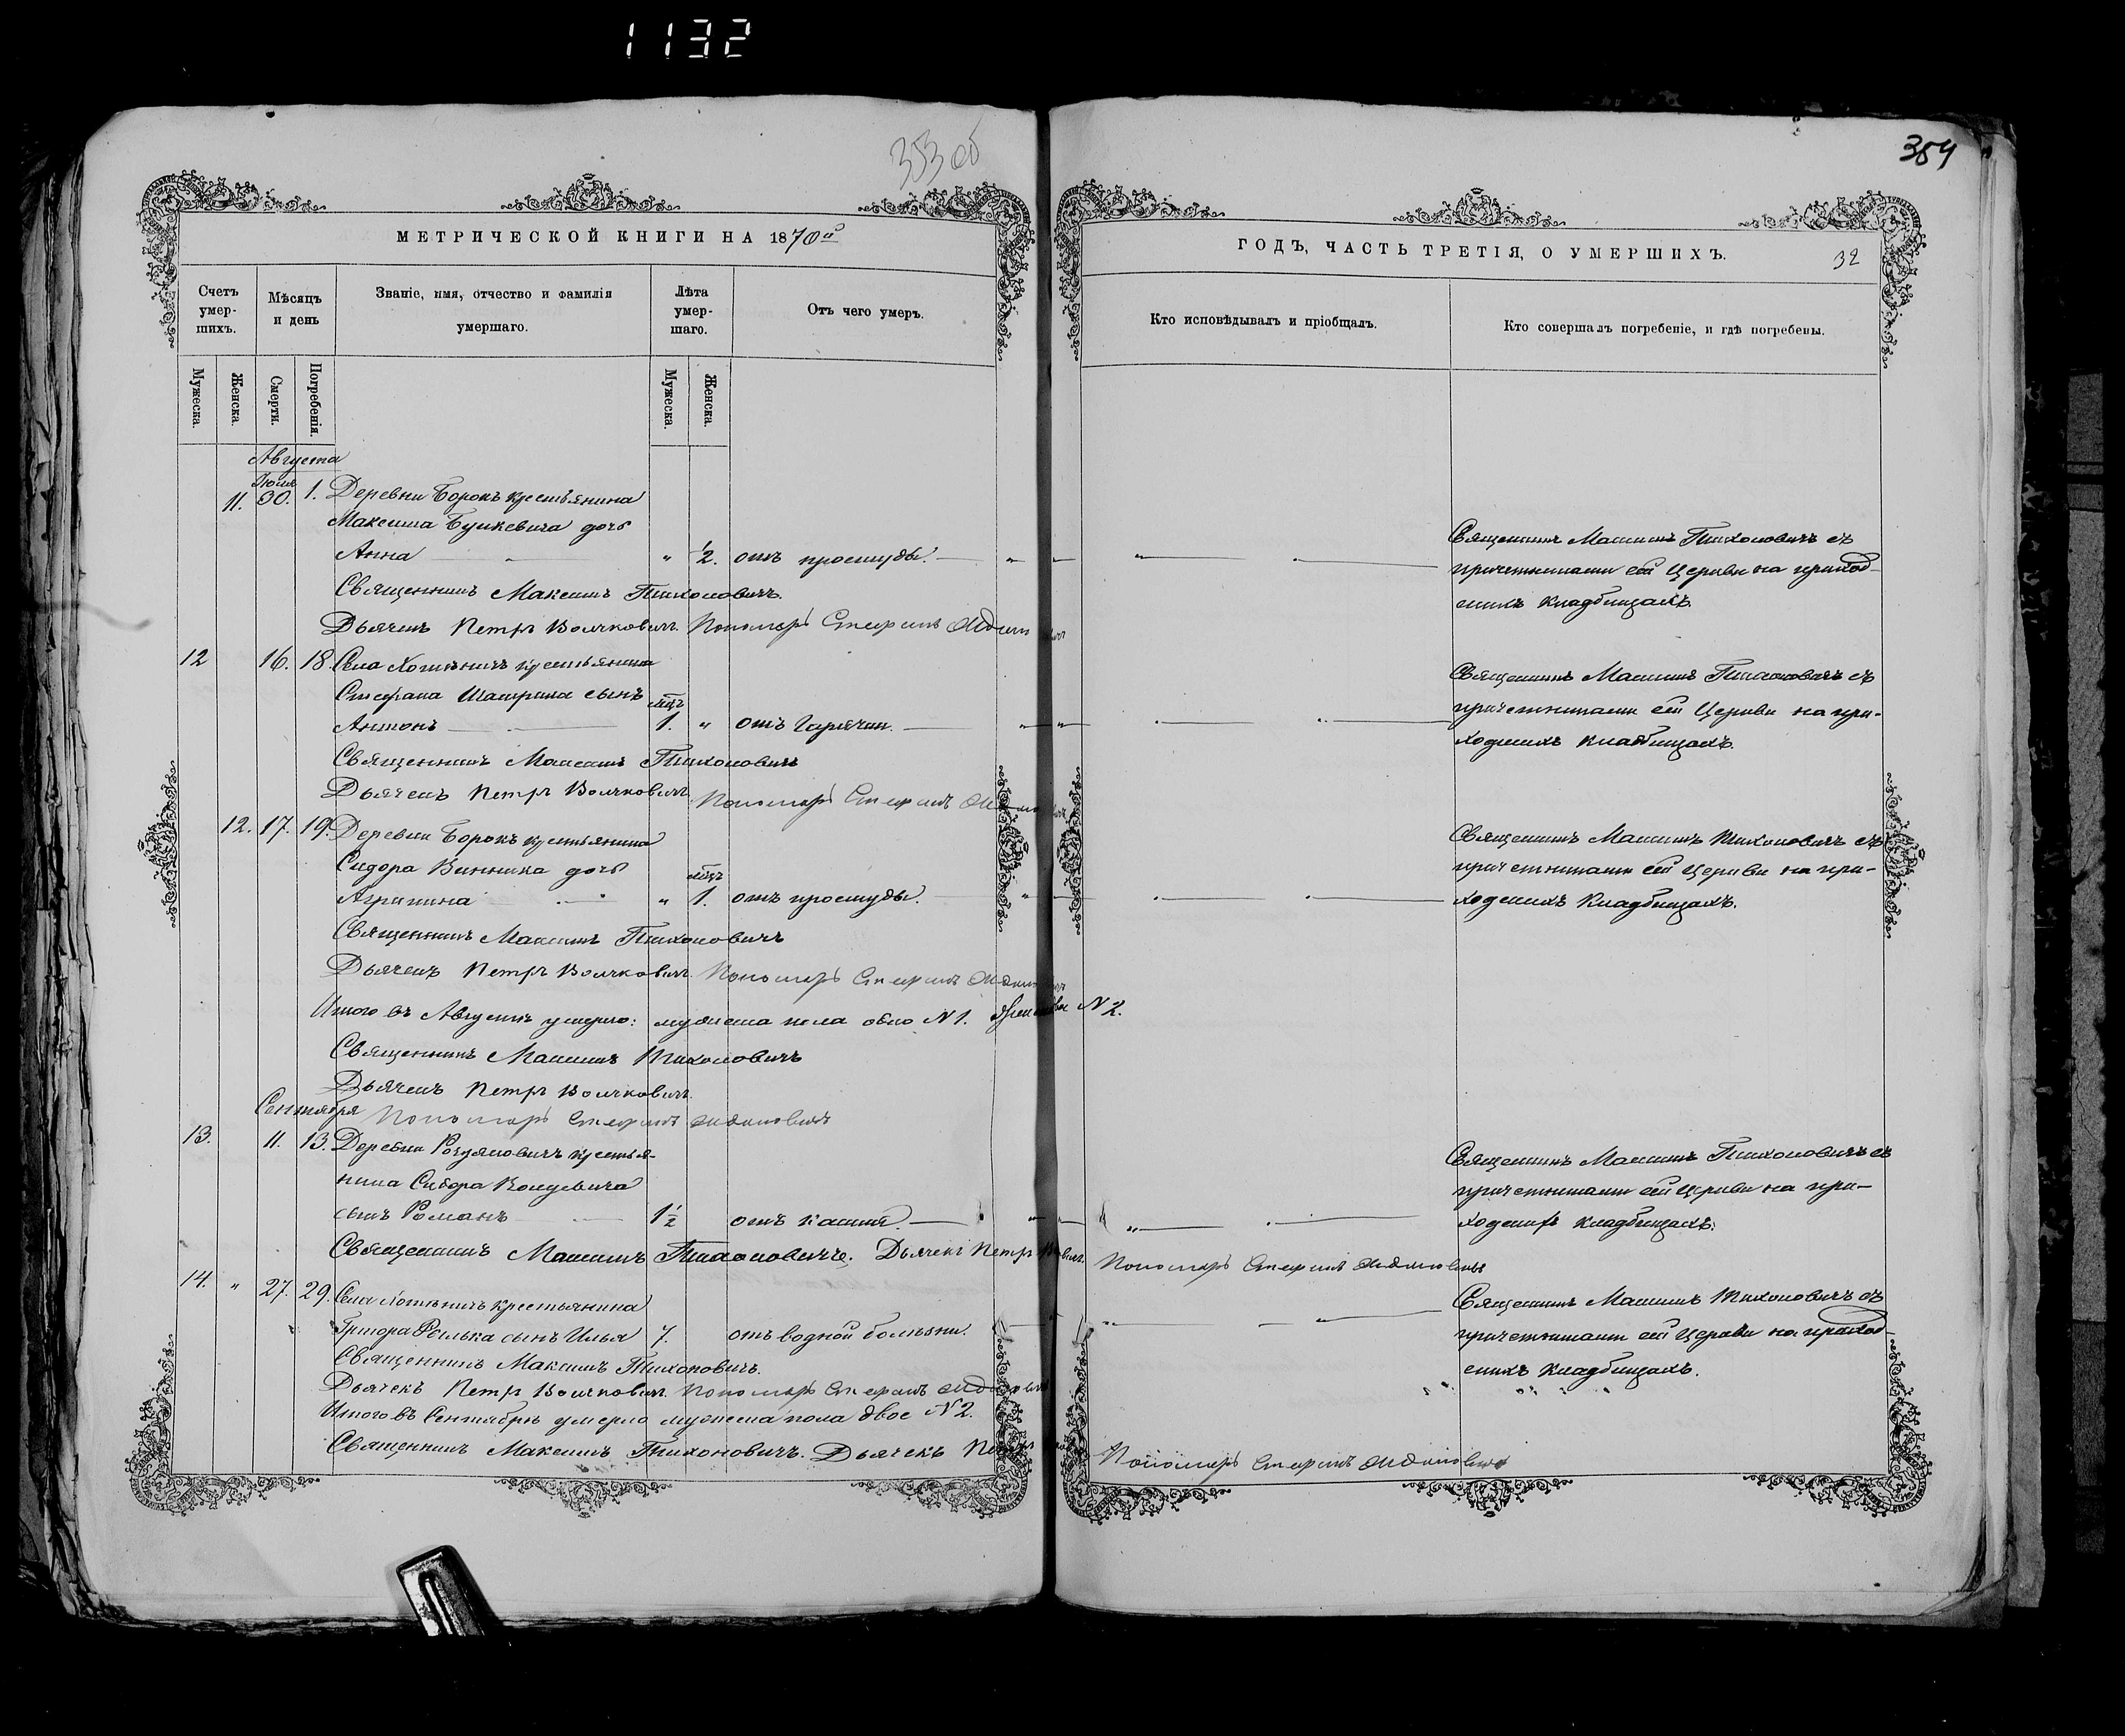 1132
353 об
354
МЕТРИЧЕСКОЙ КНИГИ НА 1870й
ГОДЪ, ЧАСТЬ ТРЕТІЯ, О УМЕРШИХЪ.
32
Счетъ умер-шихъ.
Мѣсяцъ и день
Званіе, имя, отчество и фамилія умершаго.
Лѣта умер-шаго.
Отъ чего умеръ.
Кто исповѣдывалъ и пріобщалъ.
Кто совершалъ погребеніе, и гдѣ погребены.
Мужеска. Женска. Смерти. Погребенія. Мужеска. Женска.
Августа
Июля
11. 30. 1. Деревни Борокъ крестьянина
Максима Буикевича дочь
Анна " ½. отъ простуды.
Священникъ Максимъ Тихоновичъ съ
причетниками сей Церкви на приход-
скихъ кладбищахъ.
Священникъ Максимъ Тихоновичъ.
Дьячекъ Петръ Волчковичъ. Пономарь Стефанъ
12 16. 18. Села Хотыничъ крестьянина
Стефана сынъ мѣц.
Антонъ 1. " отъ Гарячки.
Священникъ Максимъ Тихоновичъ съ
причетниками сей Церкви на при-
ходскихъ кладбищахъ.
Священникъ Максимъ Тихоновичъ
Дьячекъ Петръ Волчковичъ. Пономарь Стефанъ
12. 17. 19. Деревни Борокъ крестьянина
Сидора Винника дочь мѣц.
Агрипина " 1. отъ простуды.
Священникъ Максимъ Тихоновичъ съ
причетниками сей Церкви на при-
ходскихъ Кладбищахъ.
Священникъ Максимъ Тихоновичъ
Дьячекъ Петръ Волчковичъ. Пономарь Стефанъ
Итого въ Августѣ умерло: мужеска пола одно N 1. Женска N 2.
Священникъ Максимъ Тихоновичъ
Дьячекъ Петръ Волчковичъ.
Сентября
Пономарь Стефанъ
13. 11. 13. Деревни крестья-
нина Сидора
сынъ Романъ 1½ отъ кашля.
Священникъ Максимъ Тихоновичъ съ
причетниками сей Церкви на при-
ходскихъ кладбищахъ.
Священникъ Максимъ Тихоновичъ. Дьячекъ Петръ
Пономарь Стефанъ
14. " 27. 29. Села Хотыничъ крестьянина
Григора сынъ Илья 7. отъ водной болѣзни.
Священникъ Максимъ Тихоновичъ съ
причетниками сей Церкви на приход-
скихъ Кладбищахъ.
Священникъ Максимъ Тихоновичъ.
Дьячекъ Петръ Волчковичъ. Пономарь Стефанъ
Итого въ Сентябрѣ умерло мужеска пола двое N 2.
Священникъ Максимъ Тихоновичъ. Дьячекъ Петръ
Пономарь Стефанъ